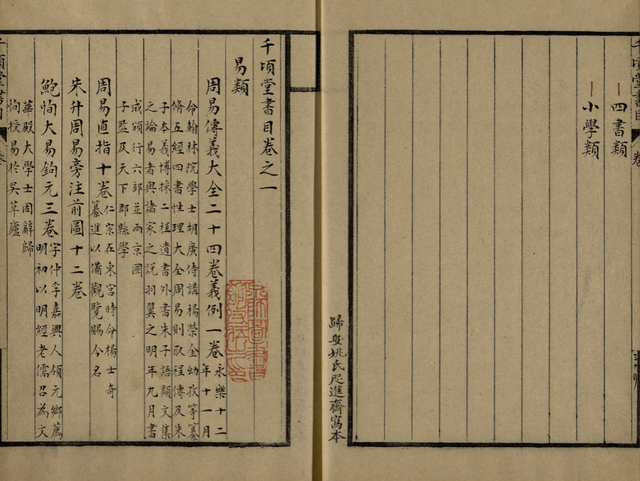 四書類
小學類
歸安姚氏咫進齋寫本
千頃堂書目卷之一
易類
周易傳義大全二十四卷義例一卷
永樂十二
年十一月
命翰林院學士胡廣侍講楊榮金幼孜等纂
修五經四書性理大全周易則取程傳及朱
子本義博採二程遺書外書朱子語類文集
之論易者與諸家之說羽翼之明年九月書
成頒行六部並兩京國
子監及天下郡縣學
周易直指十卷
仁宗在東宮時命楊士奇
纂進以備觀覽賜今名
朱升周易旁注前圖十二卷
鮑恂大易鉤元三卷
字仲孚嘉興人領元鄉薦
明初以明經老儒召為文
華殿大學士固辭歸
恂授易於吳草廬